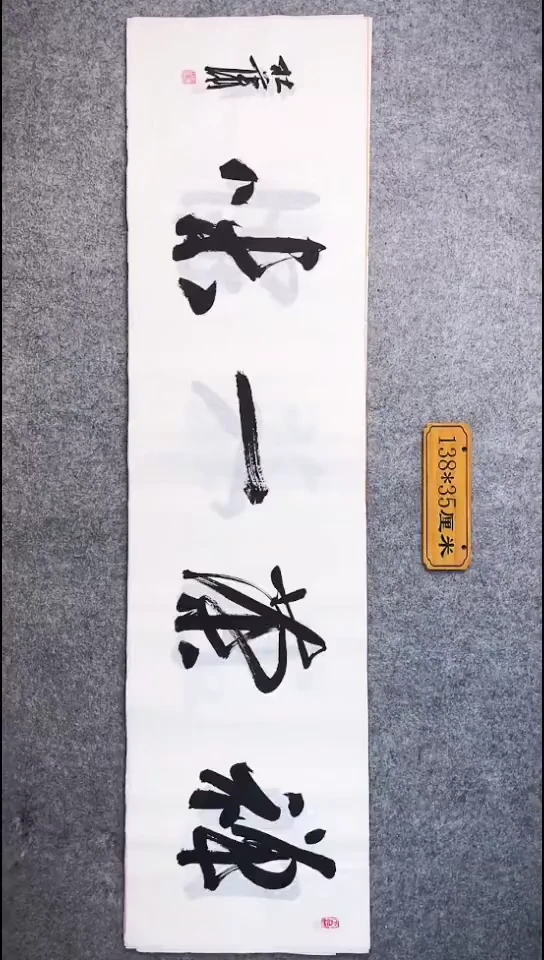 禅茶一味
138*35厘米